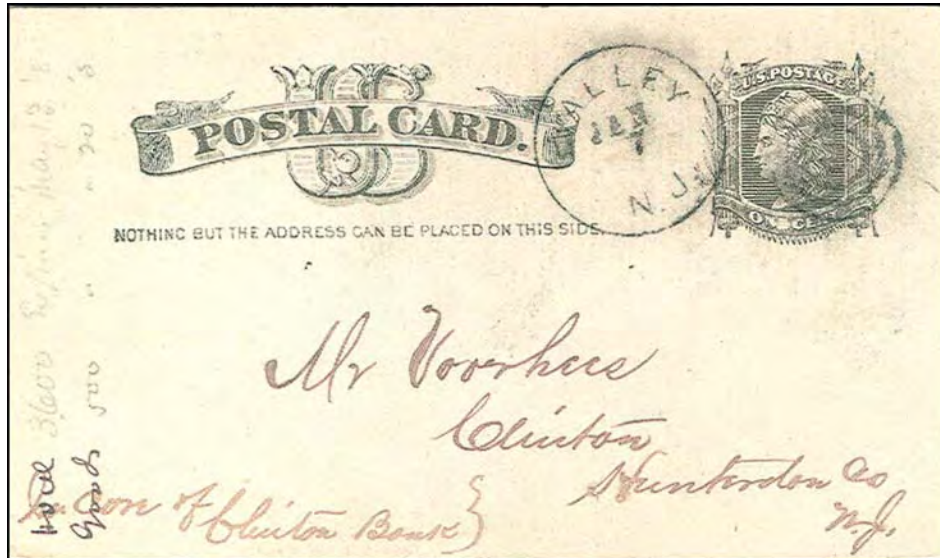 US
POSTAL CARD.
NOTHING BUT THE ADDRESS CAN BE PLACED ON THIS SIDE.
VALLEY
N.J.
U.S. POSTAGE
ONE CENT
Mr Voorhees
Clinton
Hunterdon Co
N.J.
In care of
Clinton Bank
3600
500 " " 20